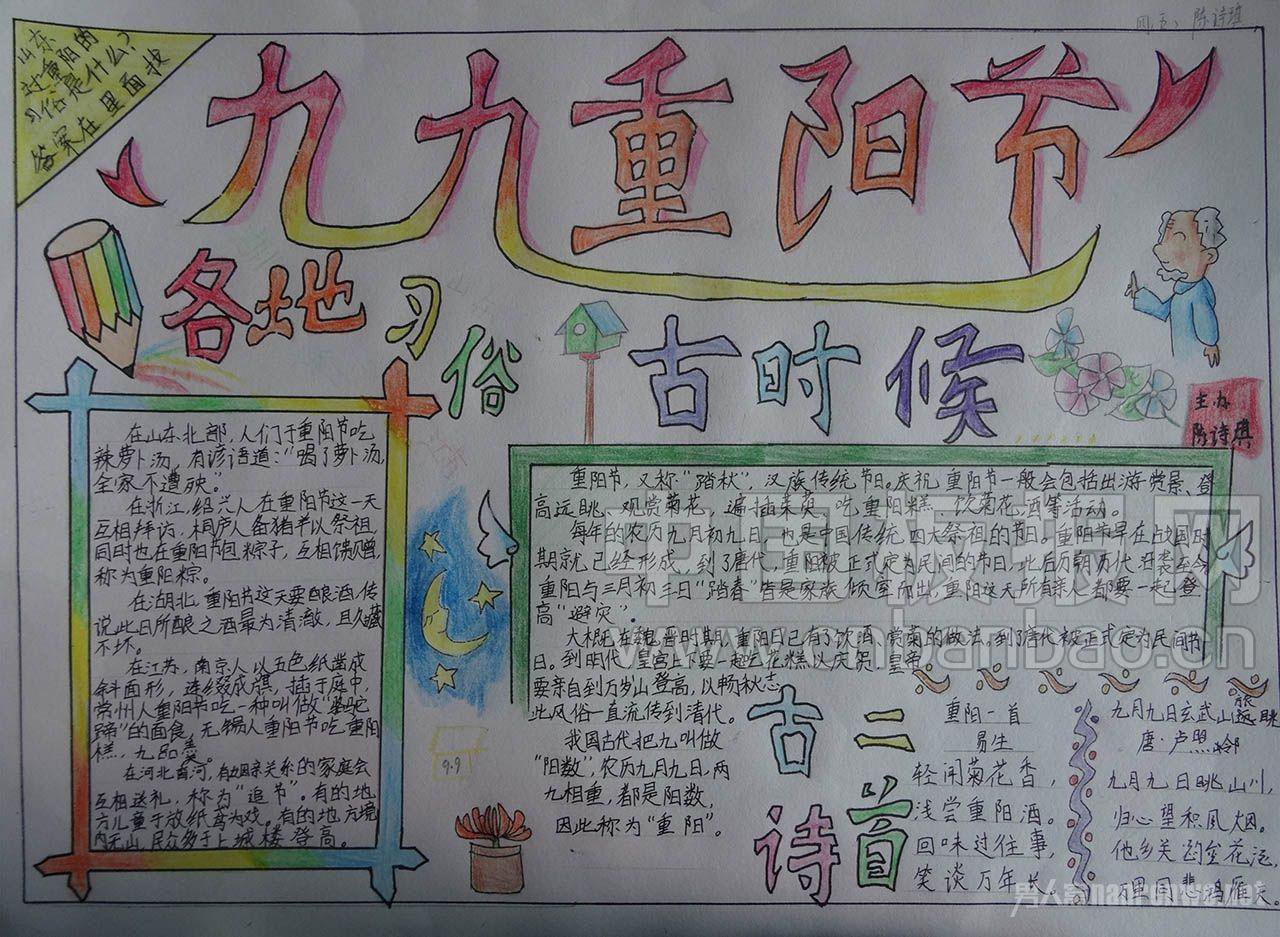 山东
过重阳的
习俗是什么?
答案在里面找
陈诗琪
九九重阳节
各地习俗
古时候
主办
陈诗琪
在山东北部,人们于重阳节吃
辣萝卜汤,有谚语道:"喝了萝卜汤,
全家不遭殃。"
在浙江,绍兴人在重阳节这一天
互相拜访,桐庐人备猪羊以祭祖,
同时也在重阳节包粽子,互相馈赠,
称为重阳粽。
在湖北,重阳节这天要酿酒,传
说此日所酿之酒最为清澈,且久藏
不坏。
在江苏,南京人以五色纸凿成
斜面形,连缀成旗,插于庭中,
常州人重阳节吃一种叫做"骆驼
蹄"的面食,无锡人重阳节吃重阳
糕,九品羹。
在河北香河,有姻亲关系的家庭会
互相送礼,称为"追节"。有的地
方儿童于放纸鸢为戏。有的地方境
内无山,民众多于上城楼登高。
重阳节,又称"踏秋",汉族传统节日。庆祝重阳节一般会包括出游赏景、登
高远眺、观赏菊花、遍插茱萸、吃重阳糕、饮菊花酒等活动。
每年的农历九月初九日,也是中国传统四大祭祖的节日。重阳节早在战国时
期就已经形成,到了唐代,重阳被正式定为民间的节日,此后历朝历代沿袭至今
重阳与三月初三日"踏春"皆是家族倾室而出,重阳这天所有亲人都要一起登
高"避灾"。
大概在魏晋时期,重阳日已有了饮酒、赏菊的做法,到了唐代被正式定为民间节
日。到明代,皇宫上下要一起吃花糕以庆贺,皇帝
要亲自到万岁山登高,以畅秋志
此风俗一直流传到清代。
我国古代把九叫做
"阳数",农历九月九日,两
九相重,都是阳数,
因此称为"重阳"。
9.9
古诗二首
重阳一首
易生
轻闻菊花香,
浅尝重阳酒。
回味过往事,
笑谈万年长。
九月九日玄武山旅眺
唐·卢照龄
九月九日眺山川,
归心望积风烟。
他乡关 花酒,
万里同悲鸿雁天。
中国模板网
nbanbao.cn
男人窝nanrenwo.net